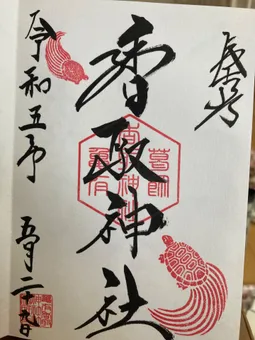 奉拝
葛飾
香取神社
香取神社
亀有
令和五年
五月二十九日